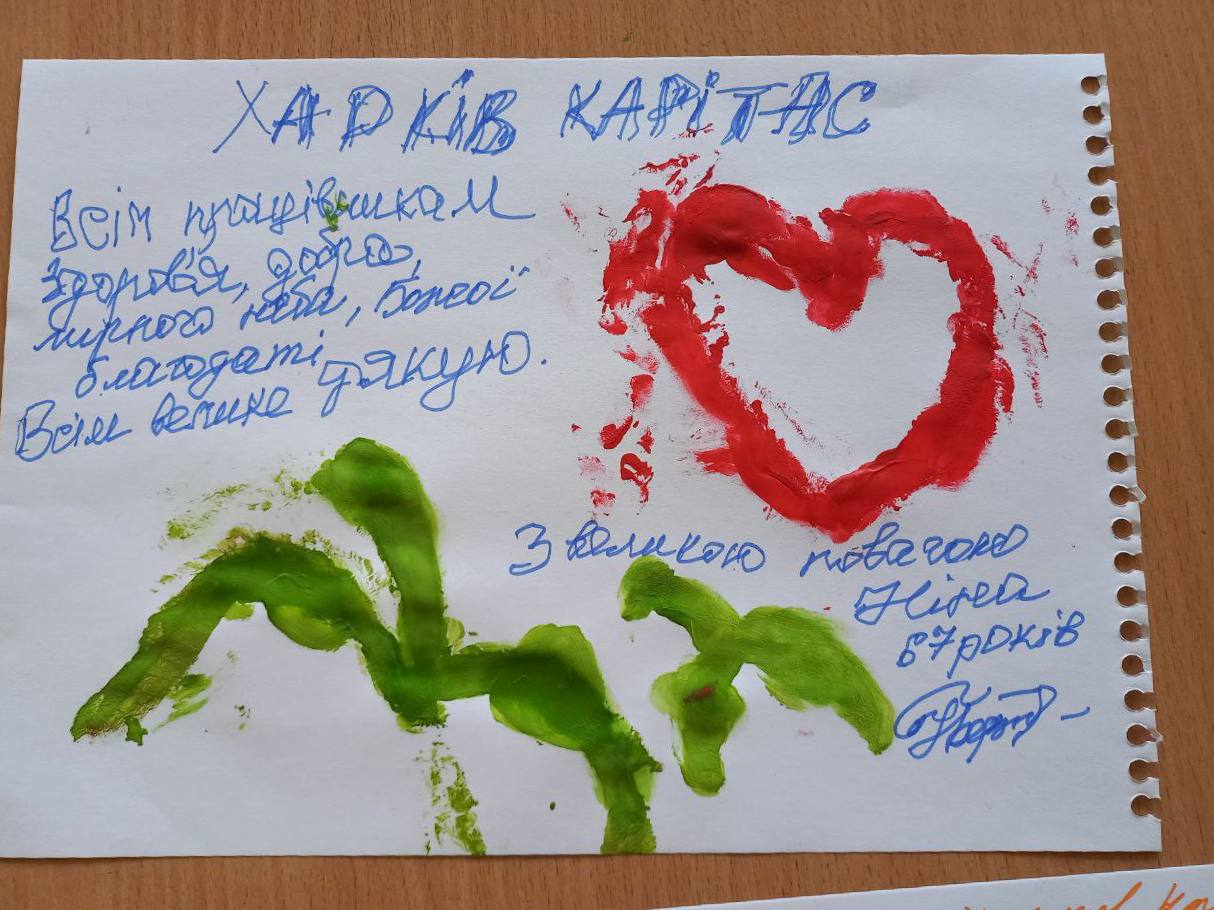 ХАРКІВ КАРІТАС
Всім працівникам
здоров'я, добра,
мирного неба, Божої
благодаті
Всім велике дякую.
З великою повагою
Ніна
67 років